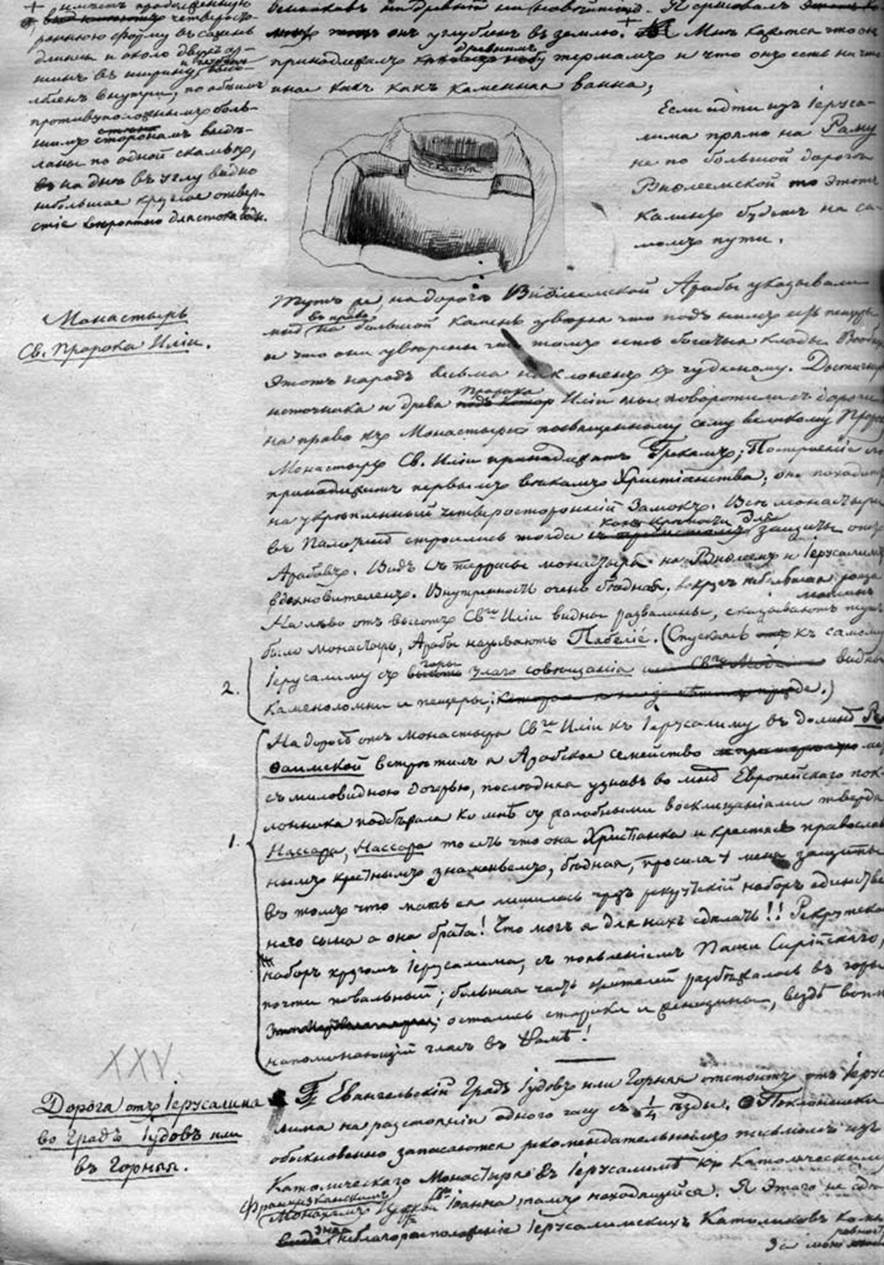 длины и около двухъ ар-
шинъ въ ширину
противуположнымъ боль-
шимъ сторонамъ выдѣ-
ланы по одной скамьѣ,
въ на днѣ въ углу видно
небольшое круглое отвер-
стіе вѣроятно для стока воды.
онъ углубленъ въ землю. Мнѣ кажется что онъ
принадлежалъ древнимъ термамъ и что онъ есть ни что
иное какъ какъ каменная ванна;
Если идти изъ Іеруса-
лима прямо на Раму
не по большой дорогѣ
Виѳлеемской то этотъ
камень будетъ на са-
момъ пути.
Монастырь
Св. Пророка Иліи.
Тутъ же на дорогѣ Виѳлеемской Арабы указывали
мнѣ въ право на большой камень увѣряя что подъ нимъ есть пещера
и что они увѣрены что тамъ есть богатые клады. Вообще
этотъ народъ весьма наклоненъ къ чудному. Достигнув
источника и древа Пророка Иліи мы поворотили съ дороги
на право къ Монастырю посвященному сему великому Прор
Монастырь Св. Иліи принадлежитъ Грекамъ; Построеніе его
принадлежитъ первымъ вѣкамъ Христіанства; онъ походитъ
на укрѣпленный четверосторонній замокъ. Всѣ монастыри
въ Палестинѣ строились тогда какъ крѣпости для защиты отъ
Арабовъ. Видъ съ террасы монастыря на Виѳлеемъ и Іерусалимъ
вдохновителенъ. Внутренность очень бѣдная. вокругъ небольшая роща
маслинъ
На лѣво отъ высотъ Св. Иліи видны развалины, сказываютъ тутъ
былъ монастырь, Арабы называютъ (Спускаясь къ самому
2.
Іерусалиму съ горы Злаго совѣщанія видны
каменоломни и пещеры; )
1.
На дорогѣ отъ монастыря Св. Иліи къ Іерусалиму въ долинѣ Ре
ѳаимской встрѣтилъ я Арабское семейство
съ миловидною дочерью, послѣдняя узнавъ во мнѣ Европейскаго пок-
лонника подбѣжала ко мнѣ съ жалобными восклицаніями твердя
Нассара, Нассара то есть что она Христіанка и крестясь православ
нымъ крестнымъ знаменьемъ, бѣдная, просила у меня защиты
въ томъ что мать ея лишилась чрезъ рекрутскій наборъ единстве
наго сына а она брата! Что могъ я для нихъ сдѣлать!! Рекрутской
наборъ кругомъ Іерусалима, съ появленіемъ Паши Сирійскаго,
почти повальный; большая часть жителей разбѣжалась въ горы
остались старики и женщины, вездѣ вопль
напоминающій гласъ въ Рамѣ!
XXV.
Дорога отъ Іерусалима
во Градъ Іудовъ или
въ Горняя.
Евангельскій Градъ Іудовъ или Горняя отстоитъ отъ Іерус
лима на разстояніи одного часу съ 1/4 ѣзды. Поклонники
обыкновенно запасаются рекомендательнымъ письмомъ изъ
Католическаго Монастыря въ Іерусалимѣ къ Католическимъ
Францисканскимъ
Монахамъ Іоанна тамъ находящейся. Я этого не сдѣ
зная неблагорасположеніе Іерусалимскихъ Католиковъ
За мою